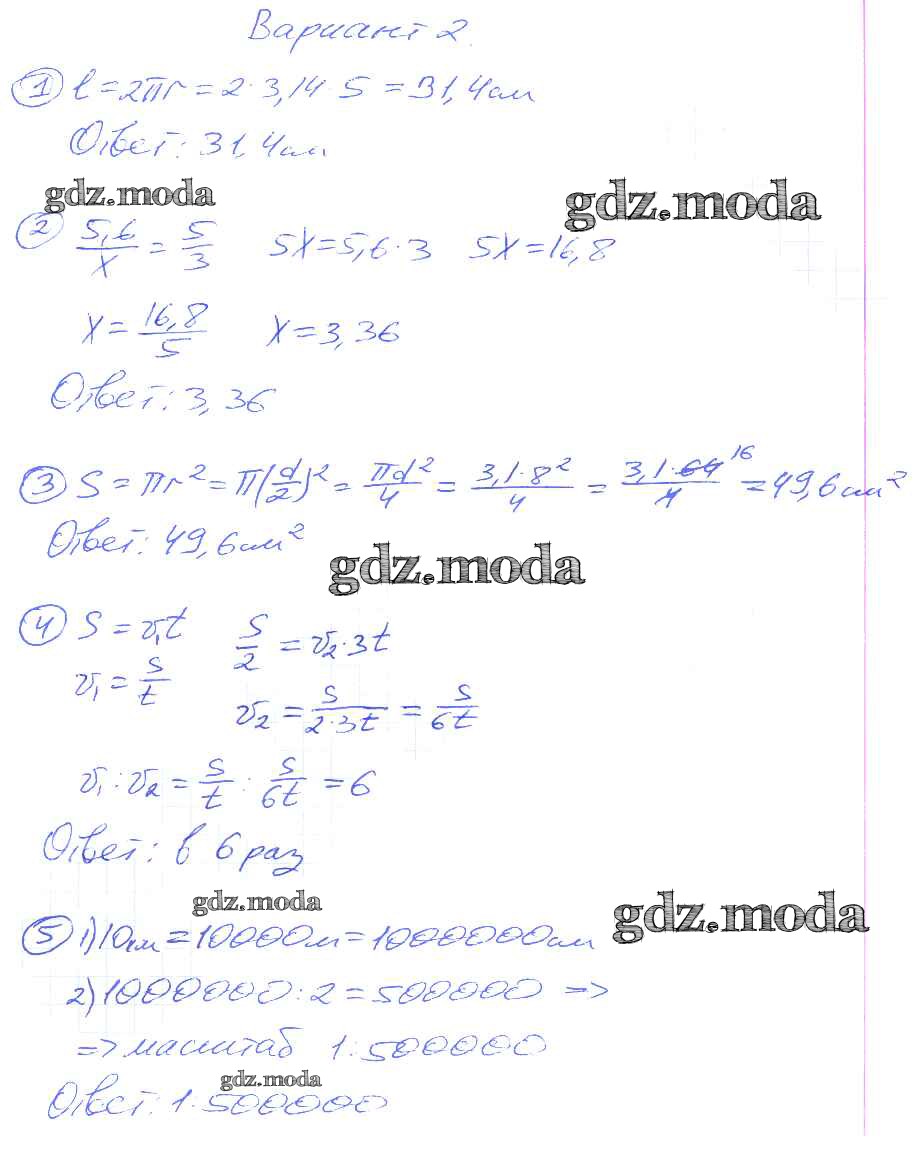 Вариант 2.
① l = 2πr = 2·3,14·5 = 31,4см
Ответ: 31,4см
gdz.moda gdz.moda
② 5,6/x = 5/3 5x = 5,6·3 5x = 16,8
x = 16,8/5 x = 3,36
Ответ: 3,36
③ S = πr² = π(d/2)² = πd²/4 = 3,1·8²/4 = 3,1·64 16/4 = 49,6см²
Ответ: 49,6см²
gdz.moda
④ S = v₁t S/2 = v₂·3t
v₁ = S/t
v₂ = S/2·3t = S/6t
v₁ : v₂ = S/t : S/6t = 6
Ответ: в 6 раз
gdz.moda gdz.moda
⑤ 1) 10км = 10000м = 1000000см
2) 1000000 : 2 = 500000 =>
=> масштаб 1:500000
gdz.moda
Ответ: 1:500000